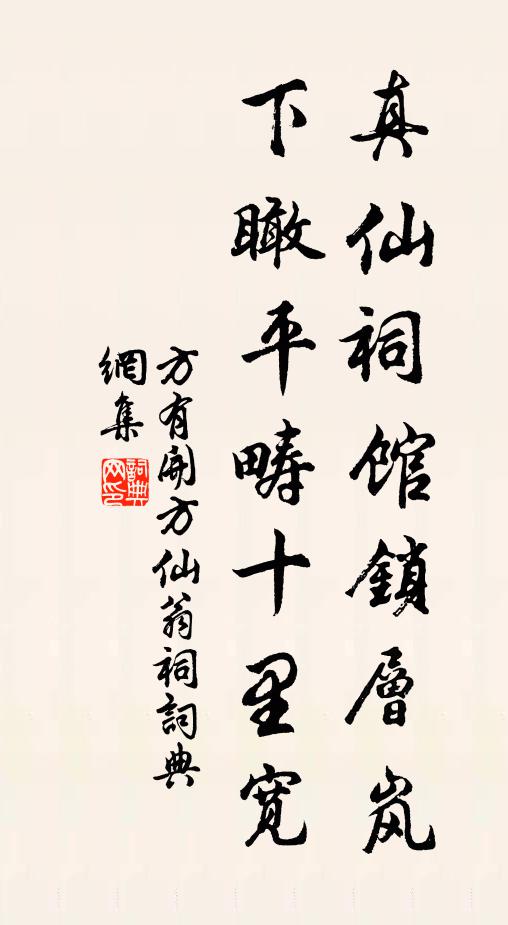 真仙祠馆鎖層岚
下瞰平疇十里寬
方有開方仙翁祠詞典
網集
詞典網印